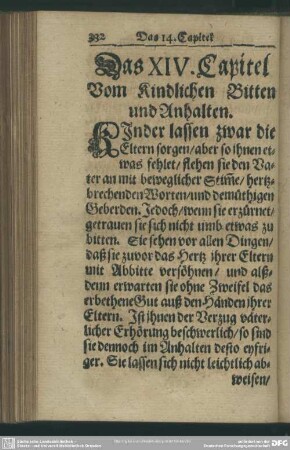 332 Das 14. Capitel
Das XIV. Capitel
Vom Kindlichen Bitten
und Anhalten.
KInder lassen zwar die
Eltern sorgen/ aber so ihnen et-
was fehlet/ flehen sie den Va-
ter an mit beweglicher Stim̃e/ hertz-
brechenden Worten/ und demüthigen
Geberden. Jedoch/ wenn sie erzürnet/
getrauen sie sich nicht umb etwas zu
bitten. Sie sehen vor allen Dingen/
daß sie zuvor das Hertz ihrer Eltern
mit Abbitte versöhnen/ und alß-
denn erwarten sie ohne Zweifel das
erbethene Gut auß den Händen ihrer
Eltern. Ist ihnen der Verzug väter-
licher Erhörung beschwerlich/ so sind
sie dennoch im Anhalten desto eyfri-
ger. Sie lassen sich nicht leichtlich ab-
weisen/